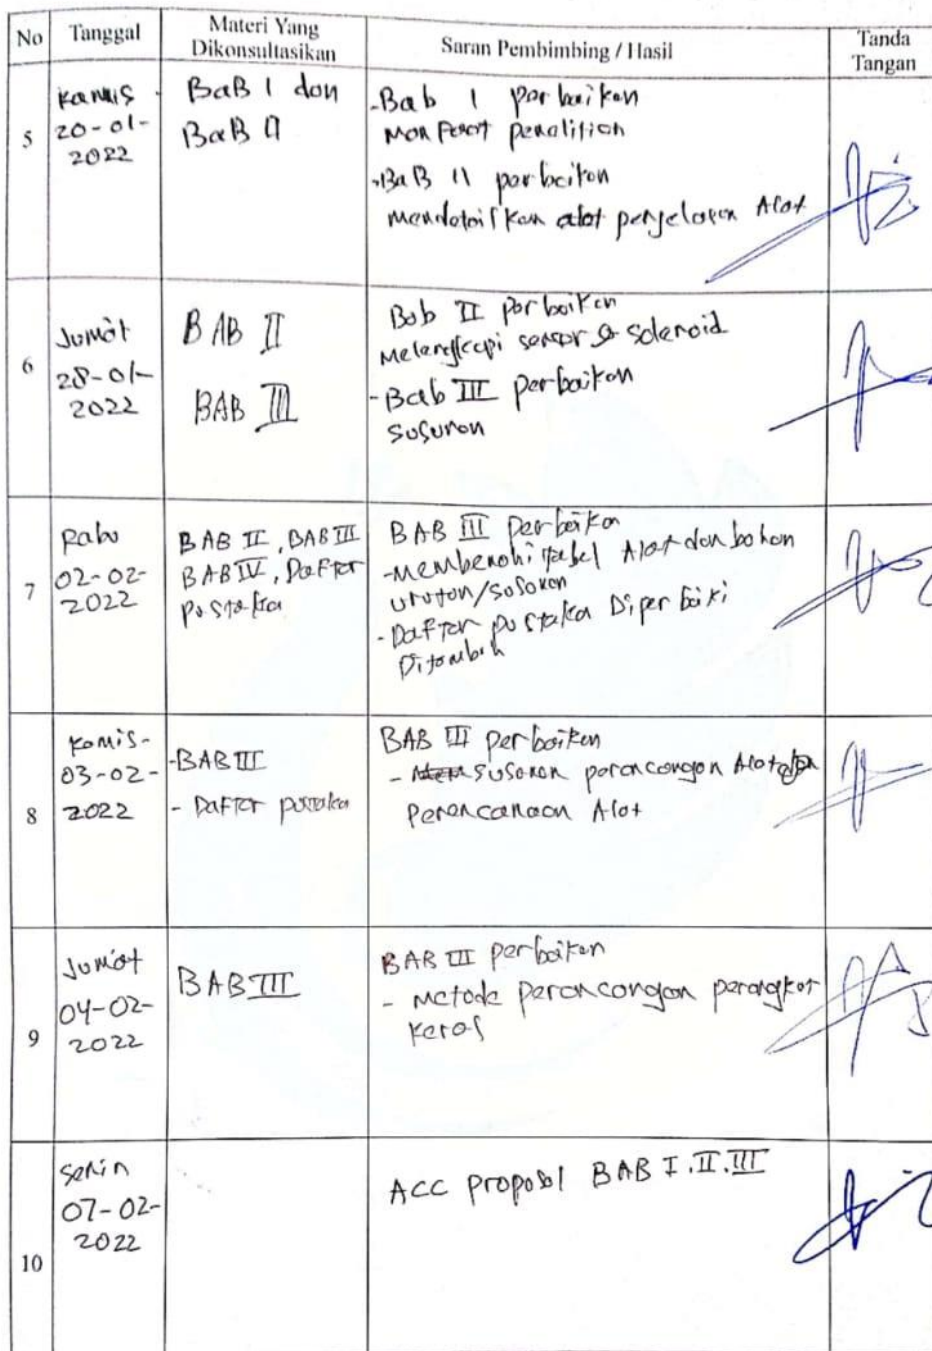 No Tanggal Materi Yang Dikonsultasikan Saran Pembimbing / Hasil Tanda Tangan
5
Kamis
20-01-
2022
BaB I dan
BaB II
-Bab I perbaikan
Manfaat penelitian
-BaB II perbaikan
mendetailkan alat penjelasan Alat
6
Jumat
28-01-
2022
BAB II
BAB III
Bab II perbaikan
Melengkapi sensor & solenoid
-Bab III perbaikan
susunan
7
Rabu
02-02-
2022
BAB II, BAB III
BAB IV, Daftar
Pustaka
BAB III perbaikan
-membenahi tabel Alat dan bahan
urutan/susunan
- Daftar pustaka Diperbaiki
Ditambah
8
Kamis-
03-02-
2022
-BAB III
- Daftar pustaka
BAB III perbaikan
- susunan perancangan Alat dan
Perencanaan Alat
9
Jumat
04-02-
2022
BAB III
BAB III perbaikan
- metode perancangan perangkat
keras
10
Senin
07-02-
2022
ACC proposal BAB I.II.III